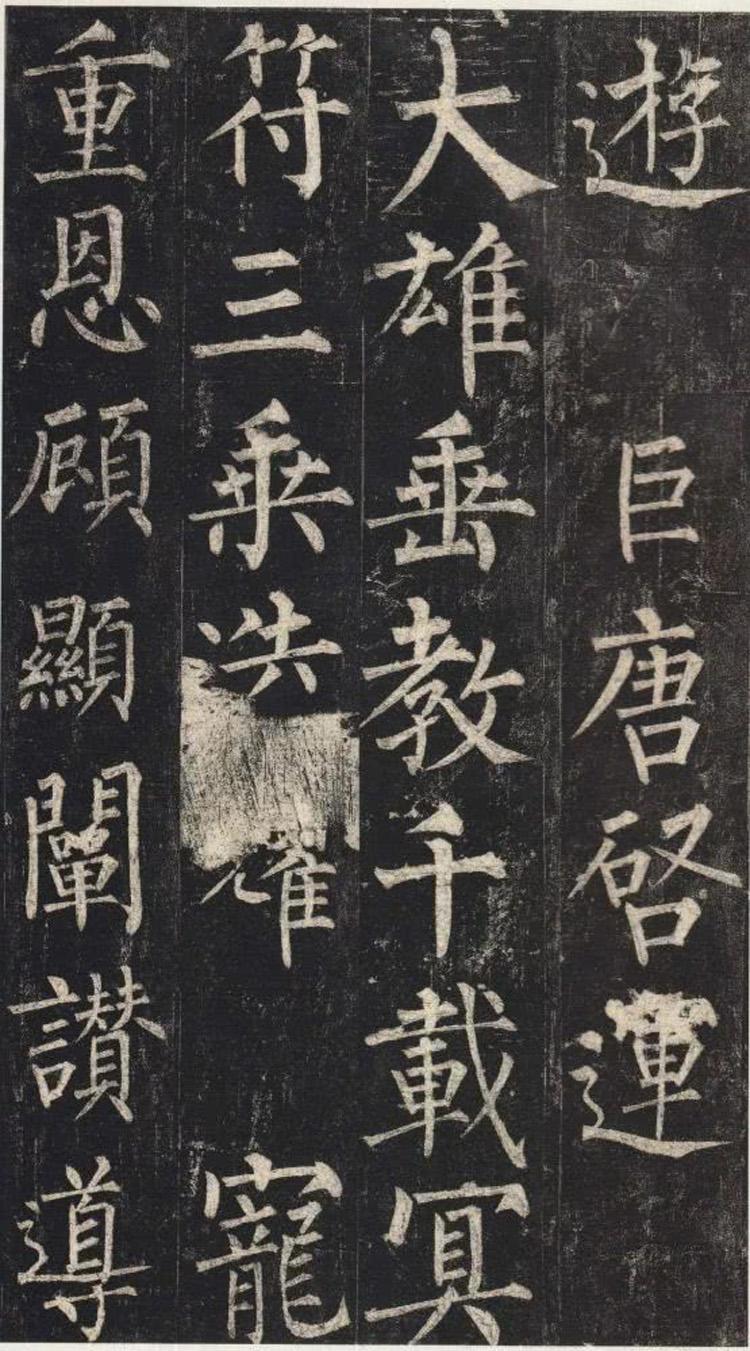 遊 巨唐啓運
大雄垂教千載冥
符三乘 耀 寵
重恩顧顯闡讃導